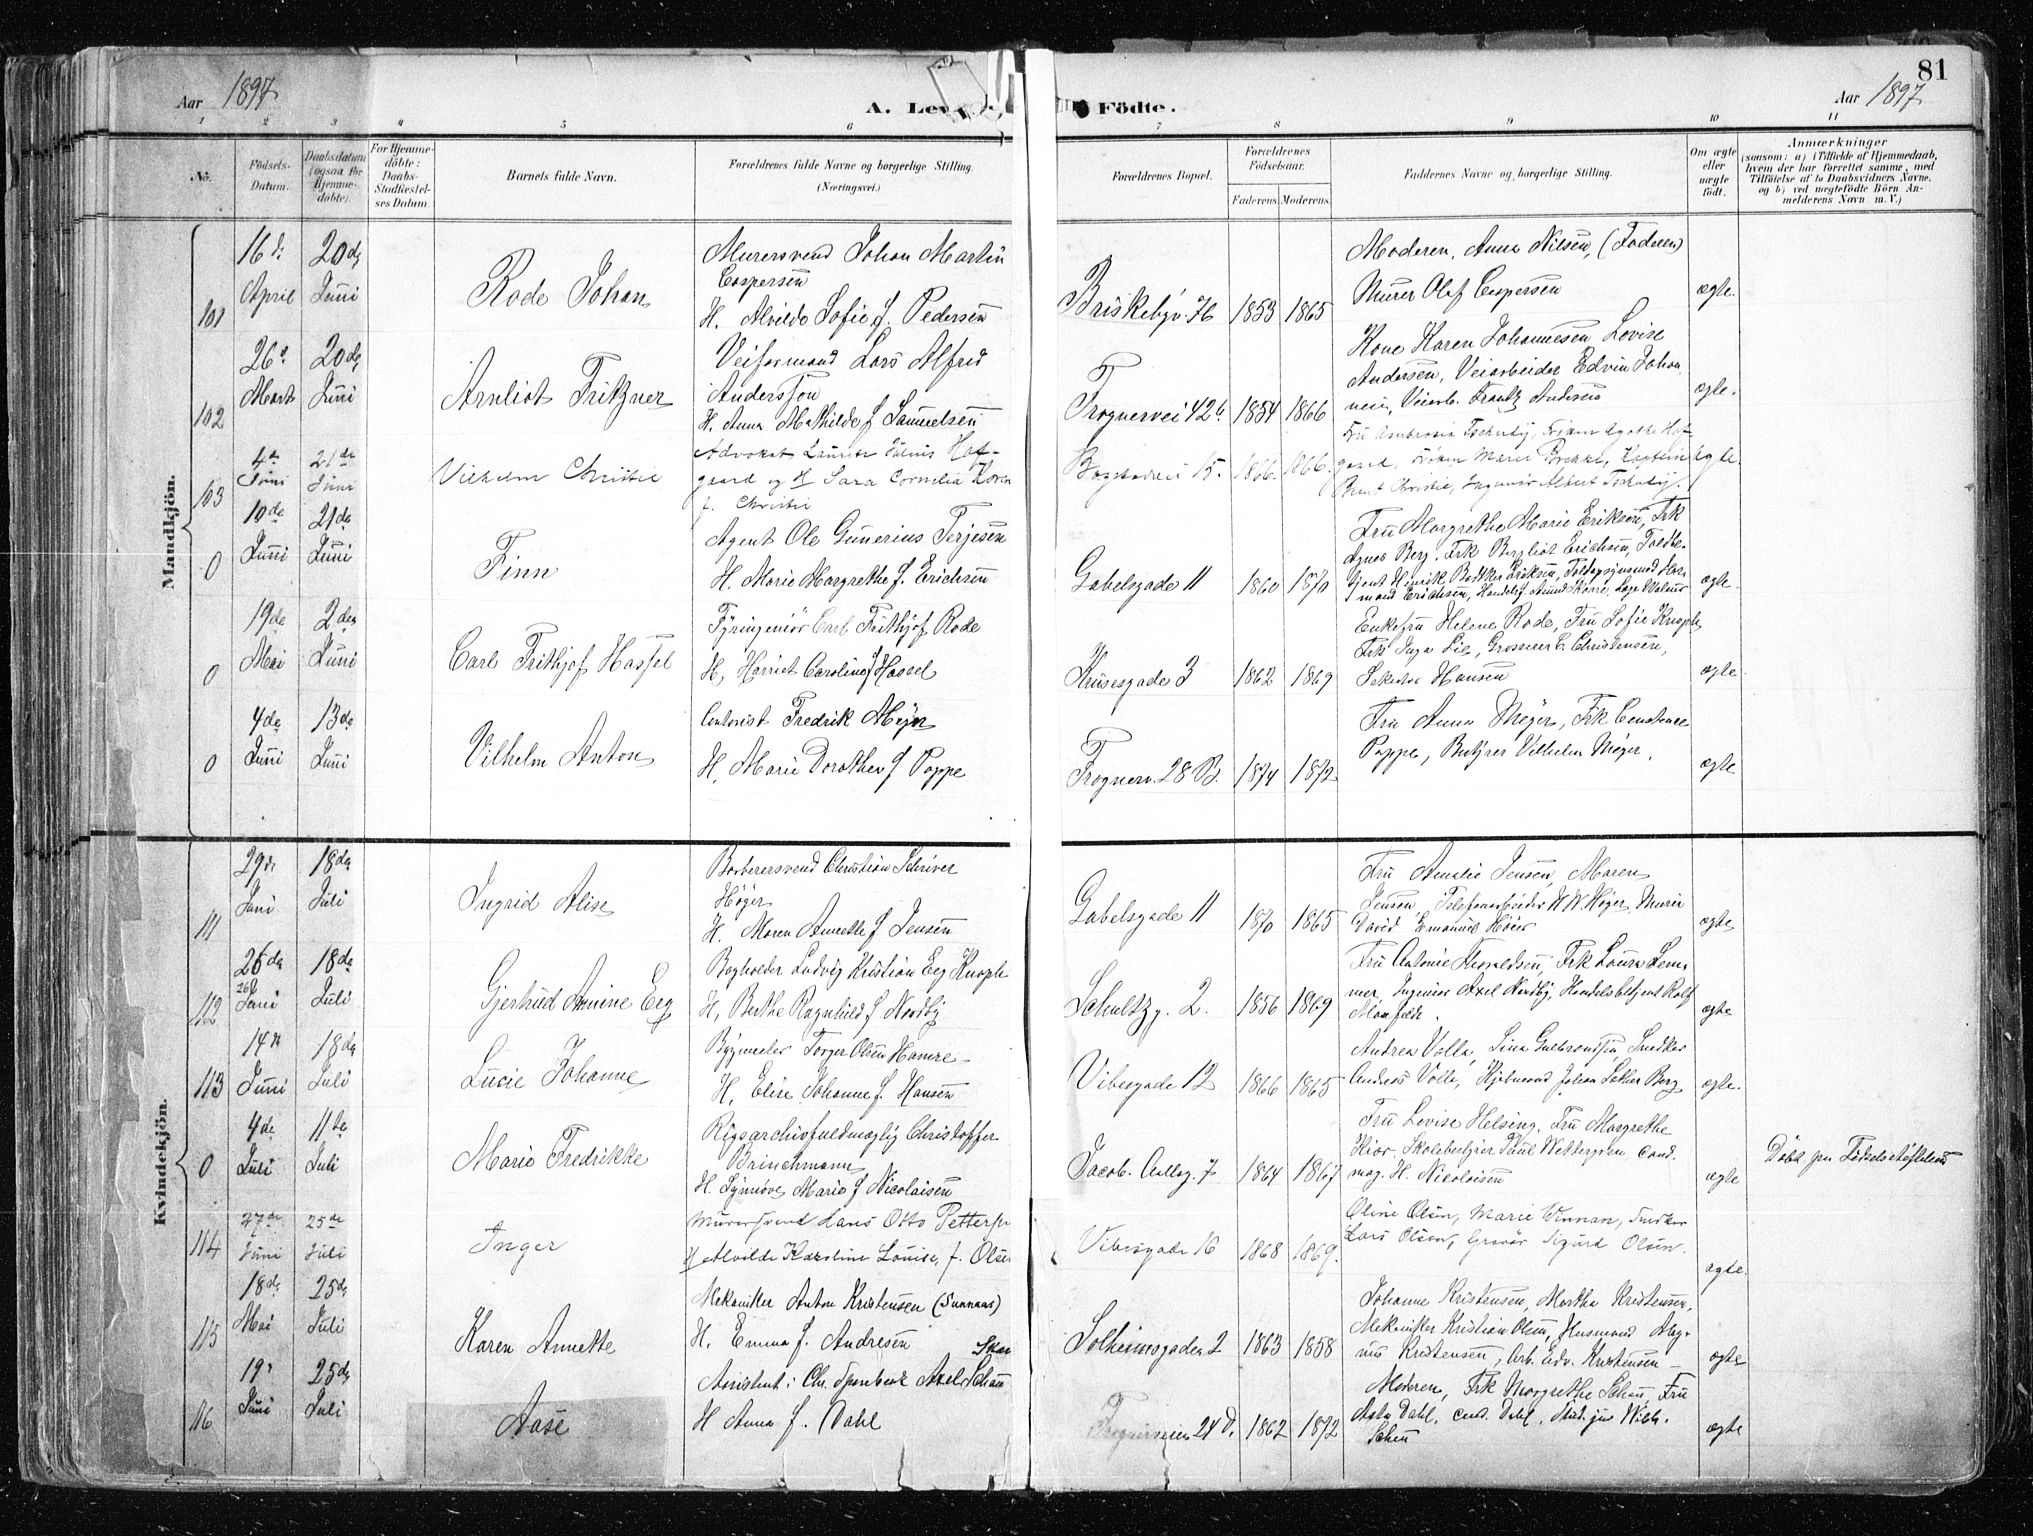 81
Aar 1897
A. Lev
Födte.
Aar 1897
1 2 3 4 5 6 7 8 9 10 11
No.
Födsels-Datum.
Daabsdatum (ogsaa for Hjemmedöbte)
For Hjemmedöbte: Daabs-Stadfæstelses Datum.
Barnets fulde Navn.
Forældrenes fulde Navne og borgerlige Stilling. (Næringsvei.)
Forældrenes Bopæl.
Forældrenes Födselsaar.
Faderens. Moderens.
Faddernes Navne og borgerlige Stilling.
Om ægte eller uægte födt.
Anmærkninger
(saasom: a) i Tilfælde af Hjemmedaab, hvem der har forrettet samme, med Tilföielse af to Daabsvidners Navne, og b) ved uægtefödte Börn Anmelderens Navn m. V.)
Mandkjön.
101 16 d: April 20 de Juni Rode Johan
Murersvend Johan Martin
Caspersen
H. Alvilde Sofie f. Pedersen
Briskebyv. 76 1853 1865
Moderen, Anna Nilsen, (Faderen)
Murer Olaf Caspersen
ægte.
102 26 Marts 20 de Juni Arnliot Fritzner
Veiformand Lars Alfred
Andersson
H. Anna Mathilde f Samuelsen
Frognervei 42 b 1854 1866
Kone Karen Johannesen, Lovise
Andersen, Veiarbeider Edvin Johan
nesen, Veiarb. Frantz Andersen
ægte.
103 4de Juni 21de Juni Vilhelm Christie
Advokat Laurits Julius Hof-
gaard og H Sara Cornelia Koren
f. Christie
15. 1866. 1866.
Fru Ambrosia Tschudy, Frøken Agathe Hof-
gaard, Frøken Marie Brekke, Kaptein
Bent Christie, Ingeniør Albert Tschudy.
ægte.
0 10de Juni 21de Juni Finn
Agent Ole Gunerius Terjesen
H. Marie Margrethe f. Erichsen
Gabelsgade 11 1860 1870
Fru Margrethe Marie Eriksen, Frk
Agnes Berg. Frk Bergliot Erichsen, Toldbe-
tjent Henrik Eriksen,
ægte.
0 19de Mai 2den Juni Carl Frithjof Hassel
Fyringeniør Carl Frithjof Rode
H, Harriet Caroline f Hassel
Krusesgade 3 1862 1869
Enkefru Helene Rode, Fru Sofie Knoph,
Frk Inga Lie, Grosserer C. Christensen,
Hansen
ægte
0 4de Juni 13de Juni Vilhelm Anton
Contorist Fredrik Meyer
H, Marie Dorothea f Poppe
Frognerv. 28 B. 1874 1872
Fru Anna Meyer, Frk Constance
Poppe, Vilhelm Meyer.
ægte
Kvindekjön.
111 29d. Juni 18de Juli Ingrid Alise
Barberersvend Christian Schriver
Høyer
H. Maren Annette f Jensen
Gabelsgade 11 1870 1865
Fru Amalie Jensen, Maren
Jensen, Telefonarbeider W.W. Høyer, Murer
David Emanuel Höier
ægte
112 26de 26/6 Juni 18de Juli Gjertrud Annine Eeg
Bogholder Ludvig Kristian Eeg Knoph
H, Berthe Ragnhild f Nordby
Schultzg. 2. 1856 1869
Fru Antonie Thoraldsen, Frk Laura Lem-
mer, Ingeniør Axel Nordby, Handelsbetjent Rolf
ægte
113 14de Juni 18de Juli Lucie Johanne
Bygmester Torger Olsen Hamre
H, Elise Johanne f. Hansen
Vibesgade 12 1866 1865
Andrea Volla, Lina Gulbrandsen, Snedker
Andreas Volla, Johan Lother Berg
ægte.
0 4de Juli 11te Juli Marie Fredrikke
Rigsarchivfuldmægtig Christoffer
Brinchmann
H. Synnöve Marie f Nicolaisen
Jacob. Aallsg. 7 1864 1867
Fru Lovise Helsing, Fru Margrethe
Kiær, Skolebestyrer Paul Wettergreen, Cand.
mag. H. Nicolaisen
ægte
Döbt paa Födselsstiftelsen
114 27de Juni 25de Juli Inger
Murersvend Hans Otto Petters
H Alvilde Karoline Louise, f. Olse
Vibesgade 16 1868 1869.
Oline Olsen, Marie Vinnan, Snedker
Lars Olsen, Gravør Sigurd Olsen.
ægte.
115 18de Mai 25de Juli Karen Annette
Mekaniker Anton Kristensen (Sunnaas)
H. Emma f. Andresen
Solheimsgaden 2 1863 1858
Johanne Kristensen, Martha Kristensen,
Mekaniker Kristian Olsen, Husmand Mag-
nus Kristensen, Arb. Edv. Kristensen
ægte
116 19d Juni 25de Juli Aase
Assistent i Chr. Sparebank Axel Schau
H Anna f. Dahl
Frognerveien 24 D. 1862 1872
Moderen, Frk Margrethe Schau, Fru
Asta Dahl, Cand. Dahl, Stud. jur Wilh.
Schau
ægte